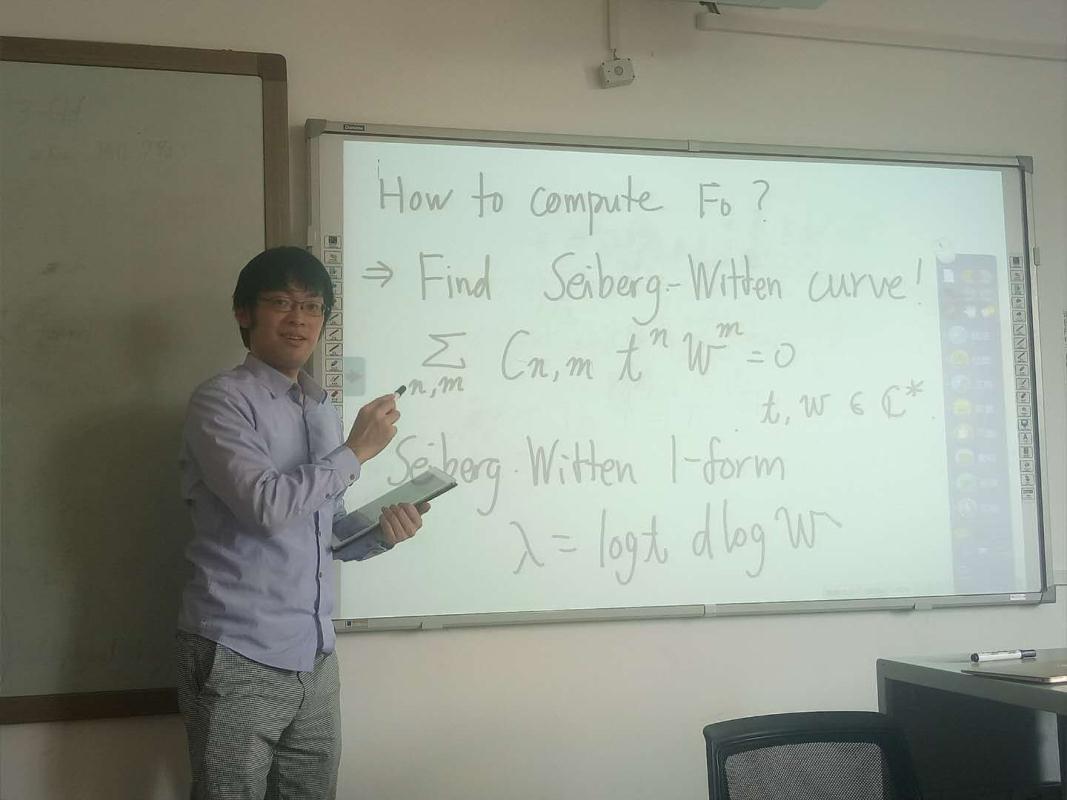 How to compute F₀ ?
⇒ Find Seiberg-Witten curve!
∑ Cn,m tⁿ Wᵐ = 0
n,m
t, w ∈ ℂ*
Seiberg-Witten 1-form
λ = log t d log W